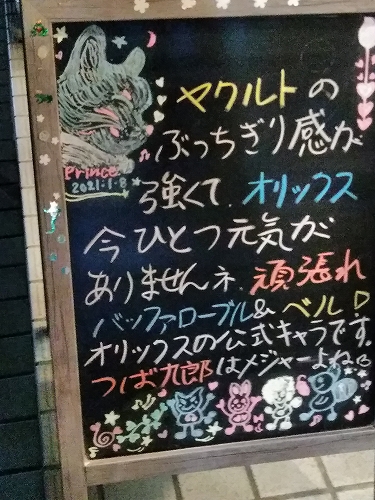 Prince
2021.1.8
ヤクルトの
ぶっちぎり感が
強くて、オリックス
今ひとつ元気が
ありませんネ、頑張れ
バッファローブル&ベル♪
オリックスの公式キャラです。
つば九郎はメジャーよね